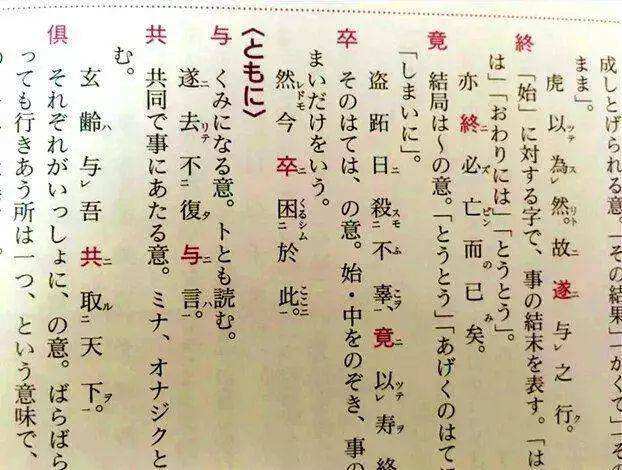 成しとげられる意。「その結果」「かくて」「その
まま」。
虎以為然。故遂与之行。
終 「始」に対する字で、事の結末を表す。「は
は」「おわりには」「とうとう」。
亦終必亡而已矣。
竟 結局は～の意。「とうとう」「あげくのはて
「しまいに」。
盗跖日殺不辜、竟以寿終
卒 そのはては、の意。始・中をのぞき、事の
まいだけをいう。
然今卒困於此。
〈ともに〉
与 くみになる意。トとも読む。
遂去不復与言。
共 共同で事にあたる意。ミナ、オナジクと
む。
玄齢与吾共取天下。
俱 それぞれがいっしょに、の意。ばらばら
っても行きあう所は一つ、という意味で、